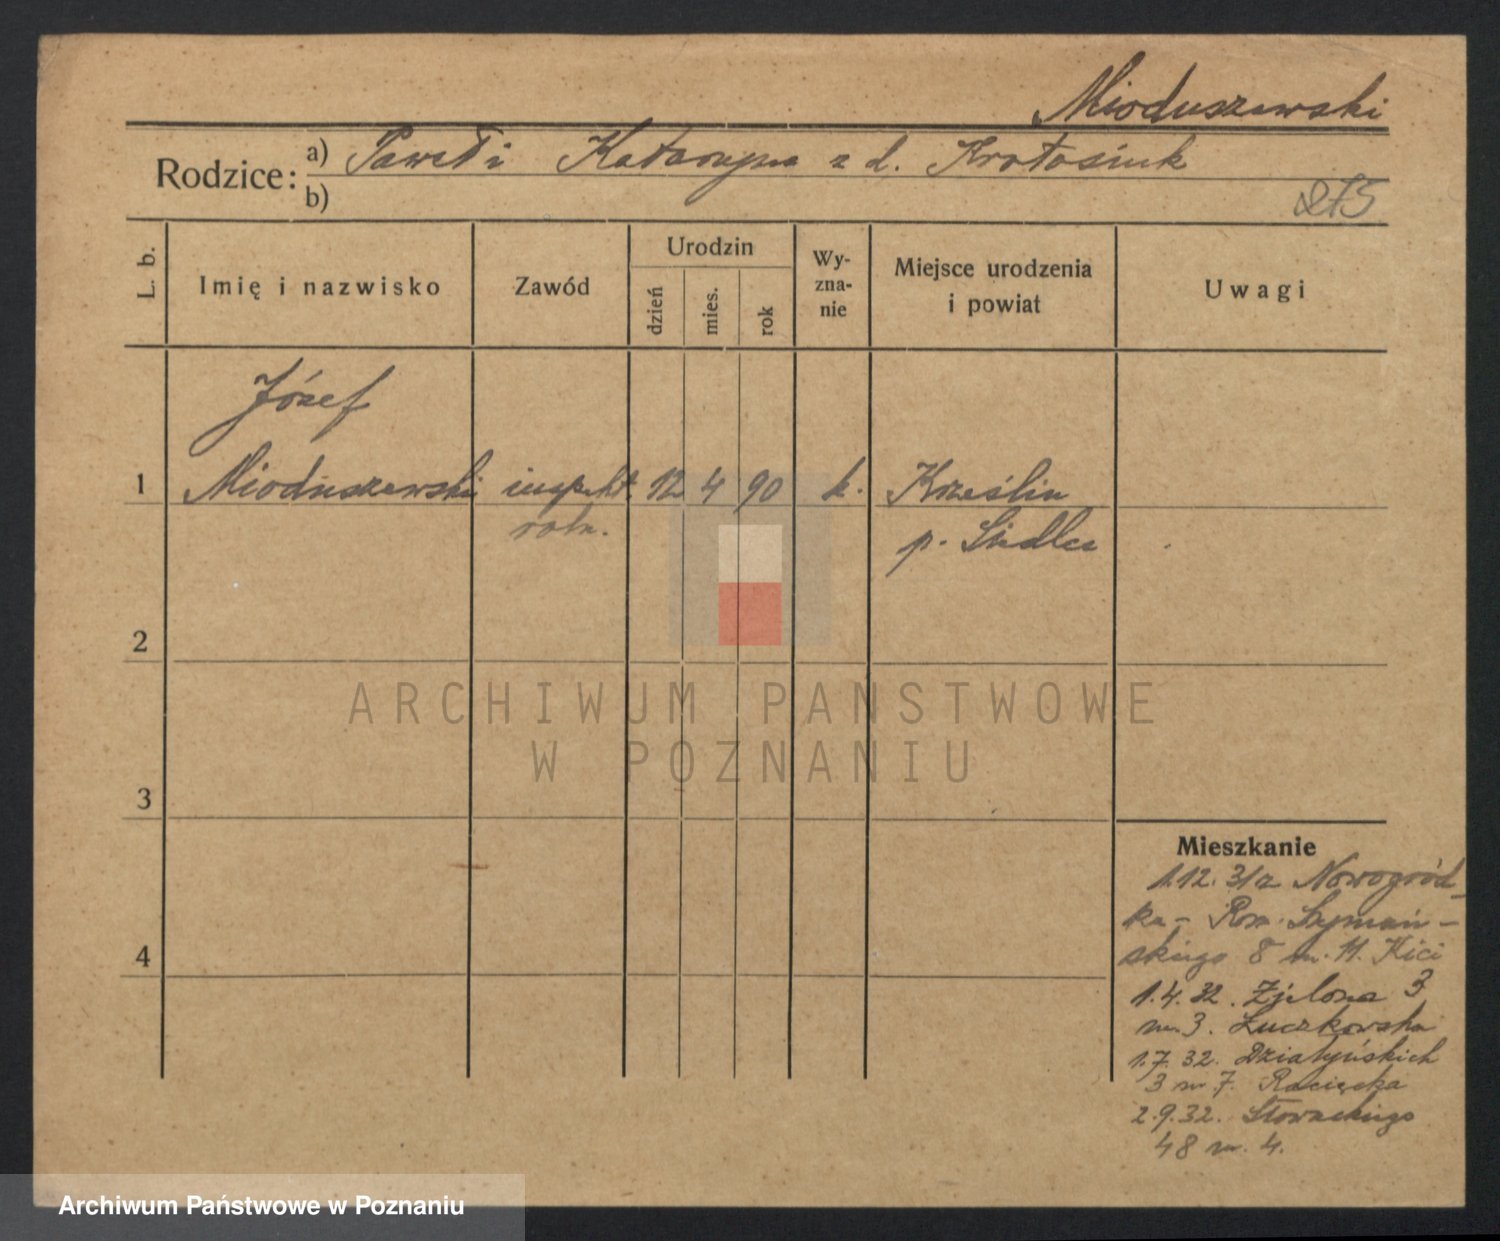 Mioduszewski
Rodzice: a) Paweł i Katarzyna z d. Krotosiuk
b)
275
L. b.
Imię i nazwisko
Zawód
Urodzin
dzień
mies.
rok
Wy-
zna-
nie
Miejsce urodzenia
i powiat
Uwagi
Józef
1 Mioduszewski inspekt. 12 4 90 k. Krześlin
roln. p. Siedlce
2
3
4
Mieszkanie
1.12.31 z Nowogród-
ka - Rom. Szymań-
skiego 8 m. 11. Kici
1.4.32. Zielona 3
m. 3. Łuczkowska
1.7.32. Działyńskich
3 m 7. Racięcka
2.9.32. Słowackiego
48 m. 4.
ARCHIWUM PAŃSTWOWE
W POZNANIU
Archiwum Państwowe w Poznaniu